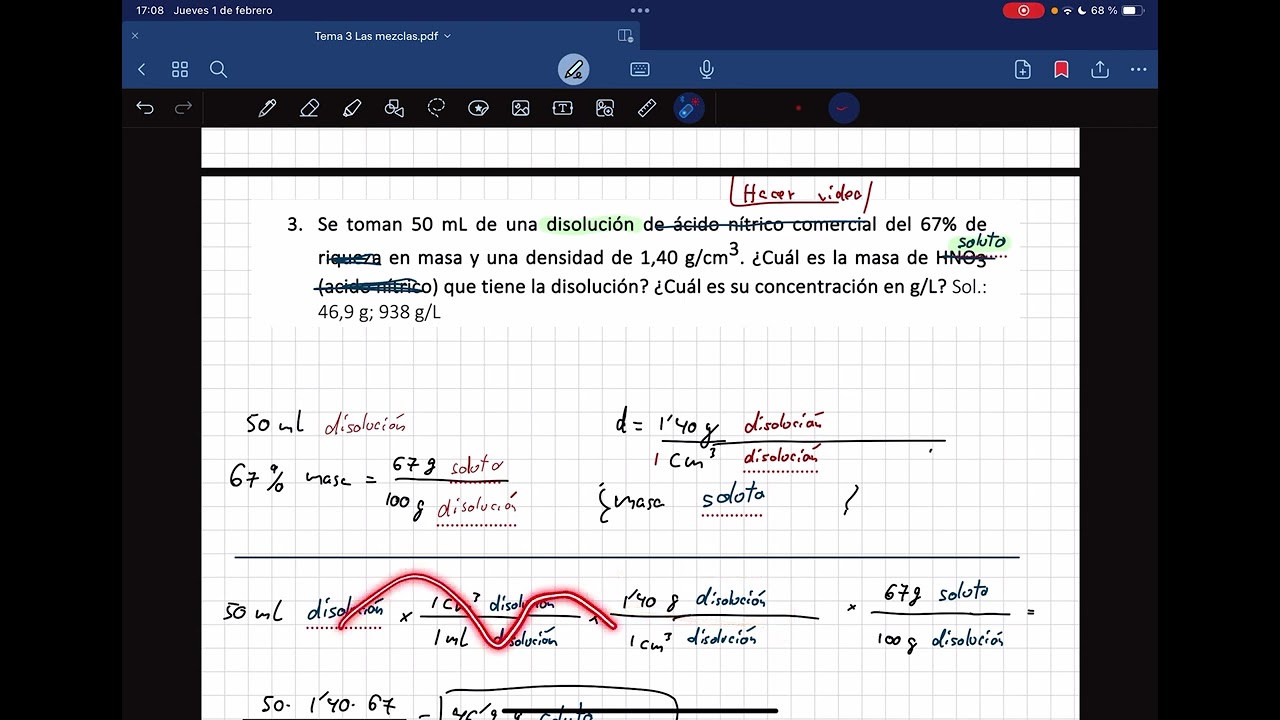 17:08 Jueves 1 de febrero
68 %
Tema 3 Las mezclas.pdf
Hacer video
3. Se toman 50 mL de una disolución de ácido nítrico comercial del 67% de
soluto
riqueza en masa y una densidad de 1,40 g/cm3. ¿Cuál es la masa de HNO3
(acido nítrico) que tiene la disolución? ¿Cuál es su concentración en g/L? Sol.:
46,9 g; 938 g/L
50 ml disolución
d = 1'40 g disolución
1 cm³ disolución
67 % masa = 67 g soluto
100 g disolución
{masa soluto }
50 ml disolución × 1 cm³ disolución × 1'40 g disolución × 67g soluto =
1 ml disolución 1 cm³ disolución 100 g disolución
50 · 1'40 · 67 =
soluto